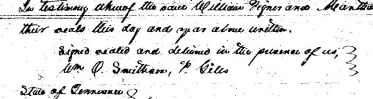 In testimony whereof the said William Tignes and Meantha
their seals this day and year above written.
Signed sealed and delivered in the presence of us,
Wm O. Smithson, P. Giles
State of Tennessee